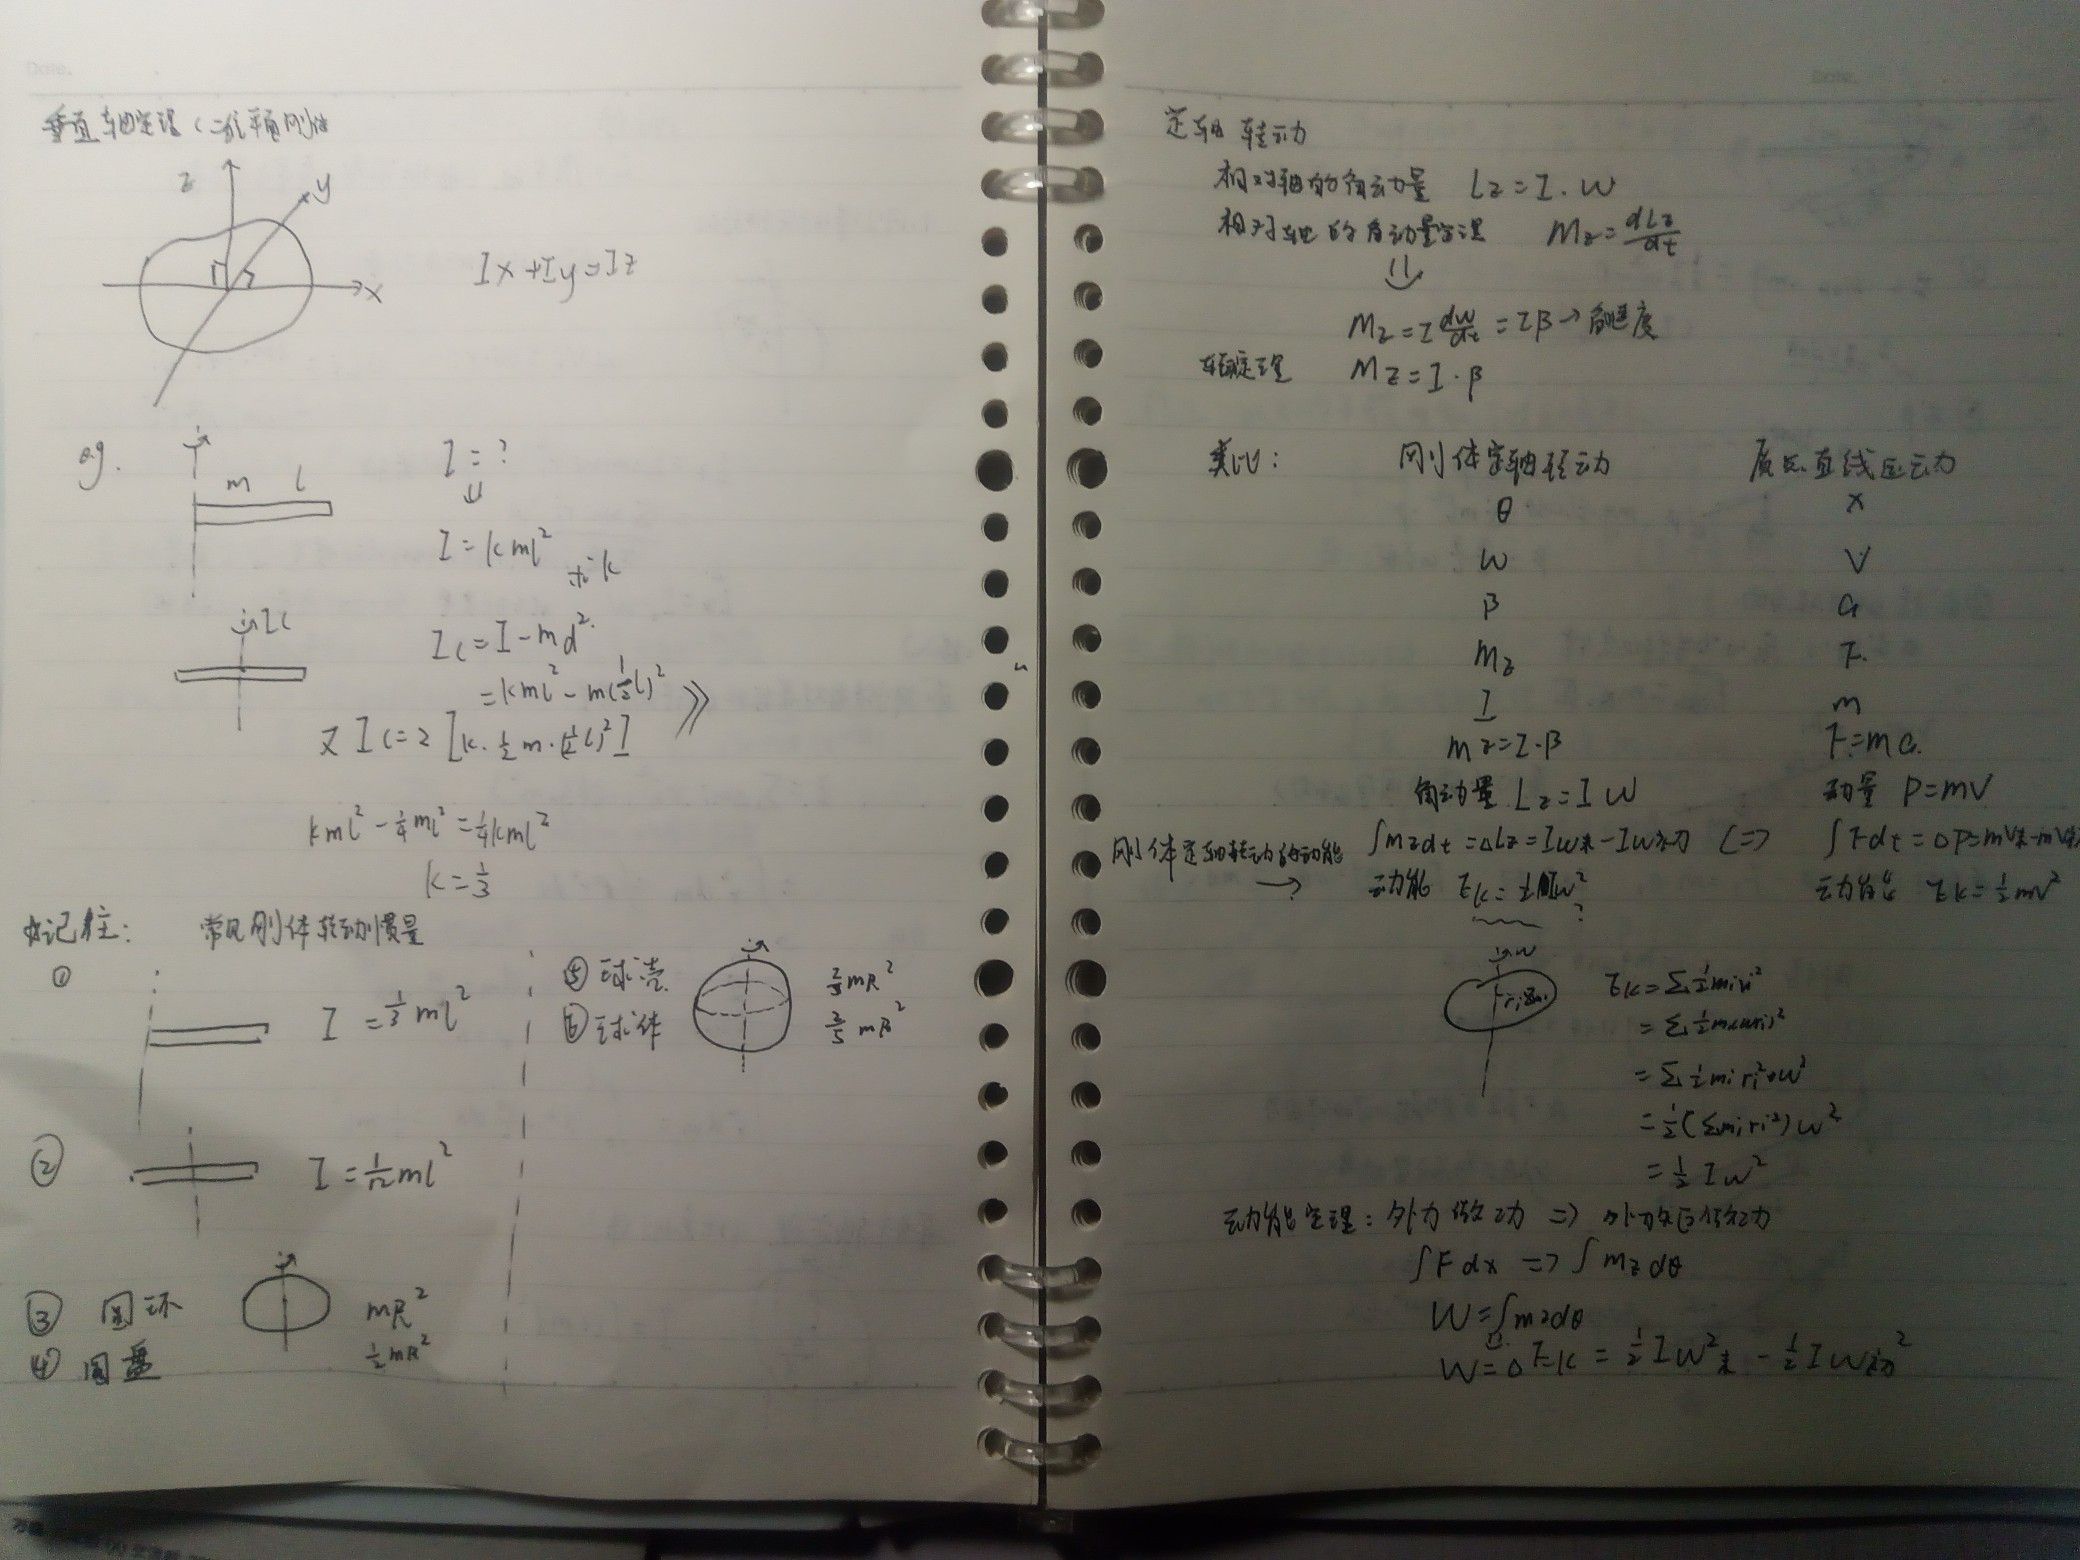 Date.
垂直轴定理(二维平面刚体
z
y
x
Ix+Iy=Iz
eg.
m l
I=?
⇓
I=kml²
求k
Ic
Ic=I-md²
=kml²-m(½l)²
又Ic=2[k·½m·(½l)²]
kml²-¼ml²=¼kml²
k=⅓
好记住: 常见刚体转动惯量
① I=⅓ml²
② I=1/12ml²
③ 圆环 mR²
④ 圆盘 ½mR²
⑤ 球壳 ⅔mR²
⑥ 球体 ⅖mR²
Date.
定轴转动
相对轴的角动量 Lz=I·W
相对轴的角动量定理 Mz=dLz/dt
⇓
Mz=I dw/dt=Iβ→
转动定理 Mz=I·β
类比: 刚体定轴转动 质点直线运动
θ x
W V
β a
Mz F
I m
Mz=I·β F=ma
角动量 Lz=IW 动量 P=mV
∫Mzdt=ΔLz=IW末-IW初 <=> ∫Fdt=ΔP=mV末-mV初
刚体定轴转动的动能 → 动能 Ek=½IW² 动能 Ek=½mV²
?
w
ri
Ek=Σ½mivi²
=Σ½mi(wri)²
=Σ½miri²·W²
=½(Σmiri²)W²
=½IW²
动能定理:外力做功 => 外力矩做功
∫Fdx => ∫Mzdθ
W=∫Mzdθ
W=ΔEk=½IW²末-½IW初²